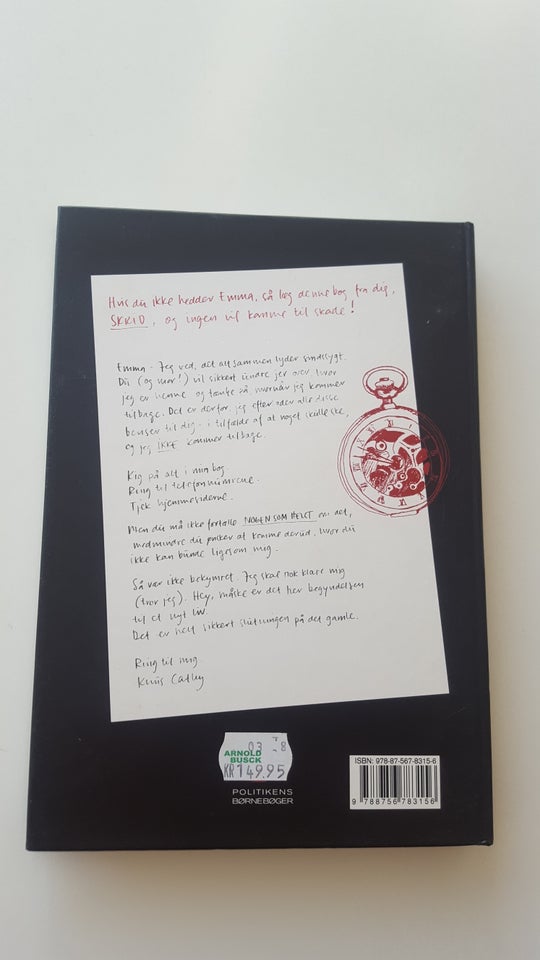 Hvis du ikke hedder Emma, så læg denne bog fra dig,
SKRID, og ingen vil komme til skade!
Emma - Jeg ved, det alt sammen lyder sindssygt.
Du (og mor!) vil sikkert undre jer over, hvor
jeg er henne og tænke på, hvornår jeg kommer
tilbage. Det er derfor, jeg efterlader alle disse
beviser til dig - i tilfælde af at noget skulle ske,
og jeg IKKE kommer tilbage.
Kig på alt i min bog.
Ring til telefonnumrene.
Tjek hjemmesiderne.
Men du må ikke fortælle NOGEN SOM HELST om det,
medmindre du ønsker at komme derud, hvor du
ikke kan bunde ligesom mig.
Så vær ikke bekymret. Jeg skal nok klare mig
(tror jeg). Hey, måske er det her begyndelsen
til et nyt liv.
Det er helt sikkert slutningen på det gamle.
Ring til mig
Cathy
03 8
ARNOLD
BUSCK
KR 149.95
POLITIKENS
BØRNEBØGER
ISBN: 978-87-567-8315-6
9 788756 783156